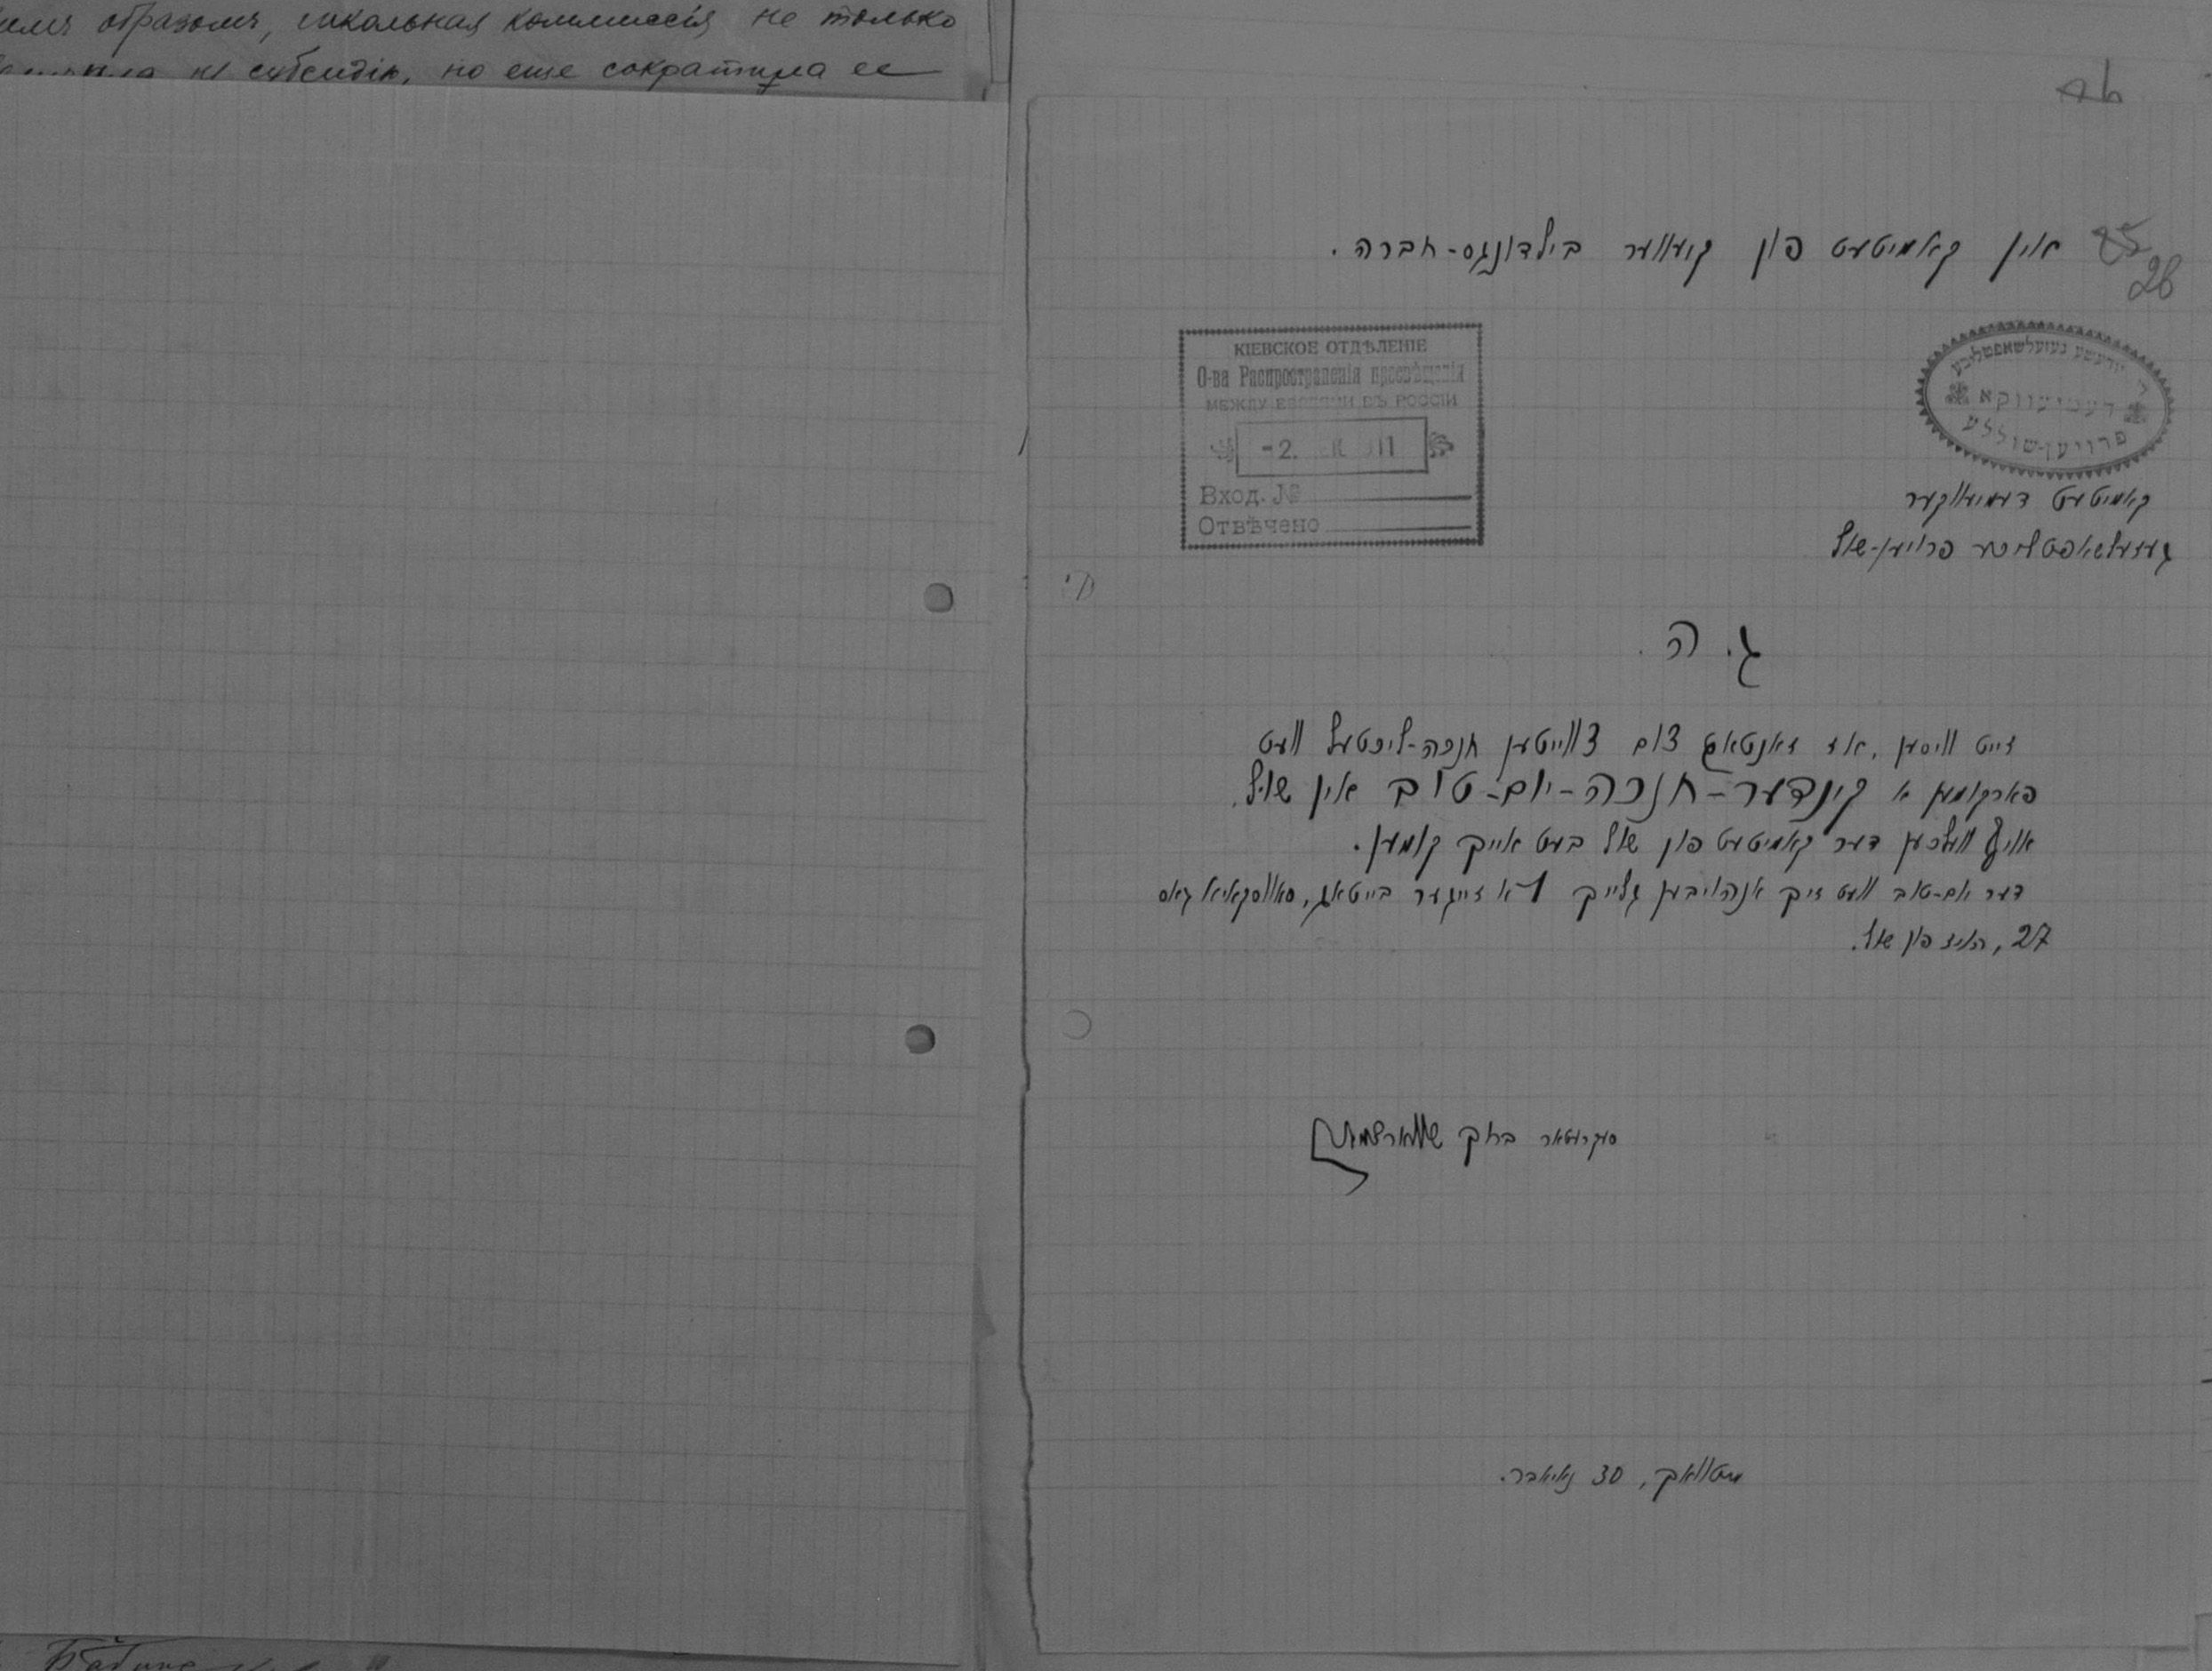 образомъ, школьная коммиссія не только
субсидію, но еще сократила ее
אין קאמיטעט פון קיעווער בילדונגס-חברה.
25
26
КІЕВСКОЕ ОТДѢЛЕНІЕ
О-ва Распространенія просвѣщенія
МЕЖДУ ЕВРЕЯМИ ВЪ РОССІИ
-2. ДЕК 1911
Вход. №
Отвѣчено
געזעלשאפטליכע
דעמיעווקא
פרויען-שוללע
קאמיטעט דעמיעווקער
געזעלשאפטליכער פרויען-שול
ג. ה.
זייט וויסען, אז זאנטאג צום צווייטען חנכה-ליכטעל וועט
פארקומען א קינדער-חנכה-יום-טוב אין שול,
אויף וועלכען דער קאמיטעט פון שול בעט אייך קומען.
דער יום-טוב וועט זיך אנהויבען גלייך 1 א זייגער בייטאג, סאווסקאיא גאס
27, הויז פון שול.
סעקרעטאר ברוך
מיטוואך, 30 נאיאבר.